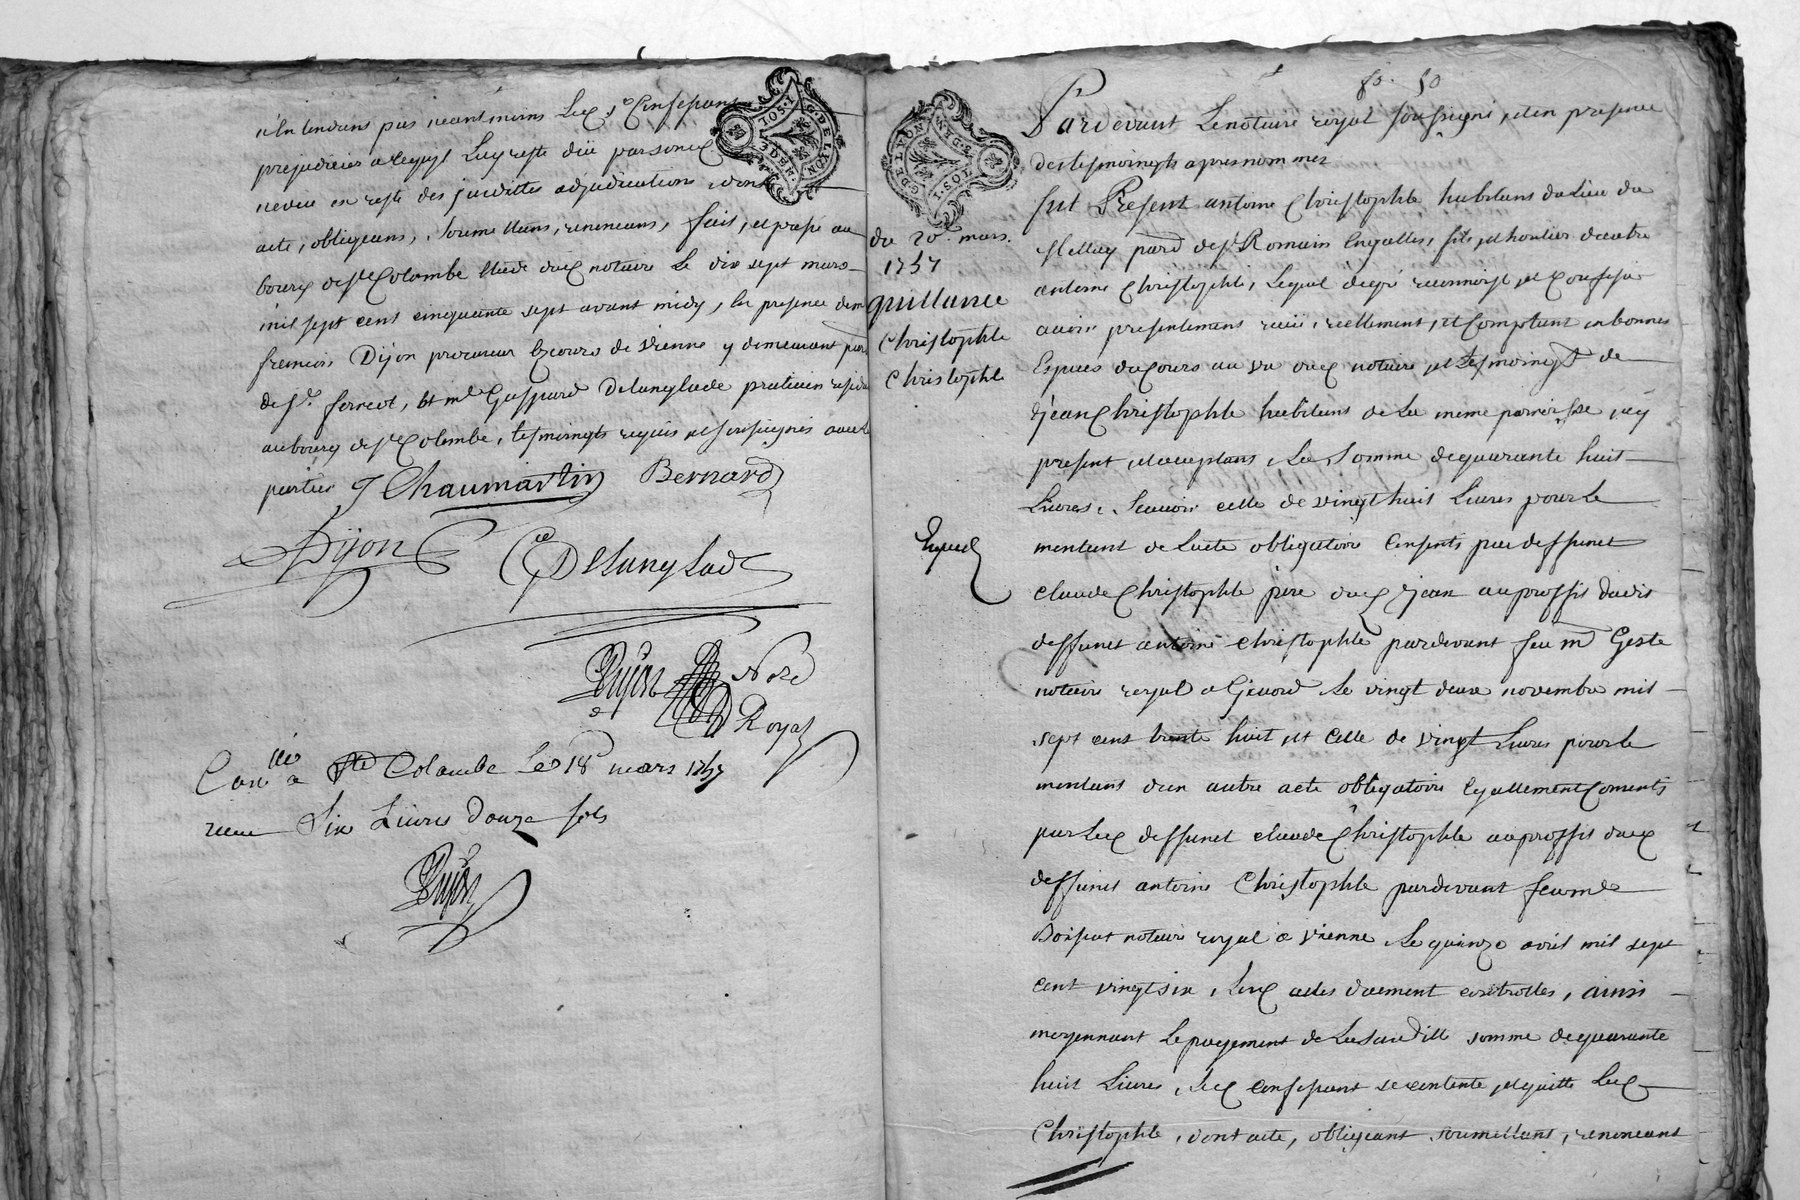 n'entendans pas neantmoins led. sr Confessant
prejudicier a ce qui luy reste dû par son
neveu en reste des susdittes adjudications, dont
acte, obligeans, soumettans, renoncans, fait, et passé au
bourg de ste Colombe etude dud notaire le dix sept mars
mil sept cent cinquante sept avant midy, en presence de me
francois Dijon procureur ez cours de vienne y demeurant parr
de st. ferreol, et me Gaspard Delanglade praticien resid
au bourg de ste Colombe, tesmoingts requis et soussignés avec les
parties J Chaumartin Bernard
Dijon Delanglade
Dujon Nore
Royal
Con.llé a Ste Colombe Le 18e mars 1757
recu Six Livres douze sols
Dujon
G. DE LYON
I. SOL
du 20e mars
1757
quittance
Christophle
Christophle
Exped
fo. 50
Pardevant Le notaire royal soussigné, et en presence
des tesmoingts apres nommez
fut Present antoine Christophle habitans du lieu du
parr de st Romain en galles, fils, et heritier d'autre
antoine Christophle, Lequel de gré reconnoist, et Confesse
avoir presentemans receu, reellement, et Comptant en bonnes
Especes du Cours au vu dud notaire, et tesmoingts de
Jean Christophle habitans de la meme parroisse, icy
present, et acceptans, La Somme de quarante huit
Livres, Scavoir celle de vingt huit Livres pour le
montant de l'acte obligatoire Consenti par deffunct
claude Christophle pere dud Jean au proffit dudit
deffunct antoine Christophle pardevant feu me Geste
notaire royal a Givord le vingt deux novembre mil
sept cent trente huit, et Celle de vingt Livres pour le
montans d'un autre acte obligatoire Egallement Consenti
par led deffunct claude Christophle au proffit dud
deffunct antoine Christophle pardevant feu me
Boissat notaire royal a vienne le quinze avril mil sept
cent vingt six, Lesd actes duement controllés, ainsi
moyennant le payement de La susditte somme de quarante
huit Livres, Led Confessant se contente, et quitte Led
Christophle, dont acte, obligeant soumettans, renoncant